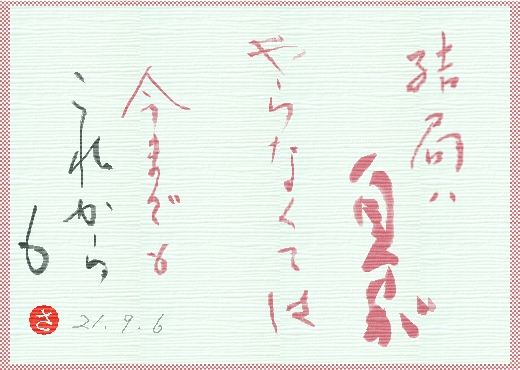 結局ハ
自分が
やらなくては
今までも
これからも
21.9.6